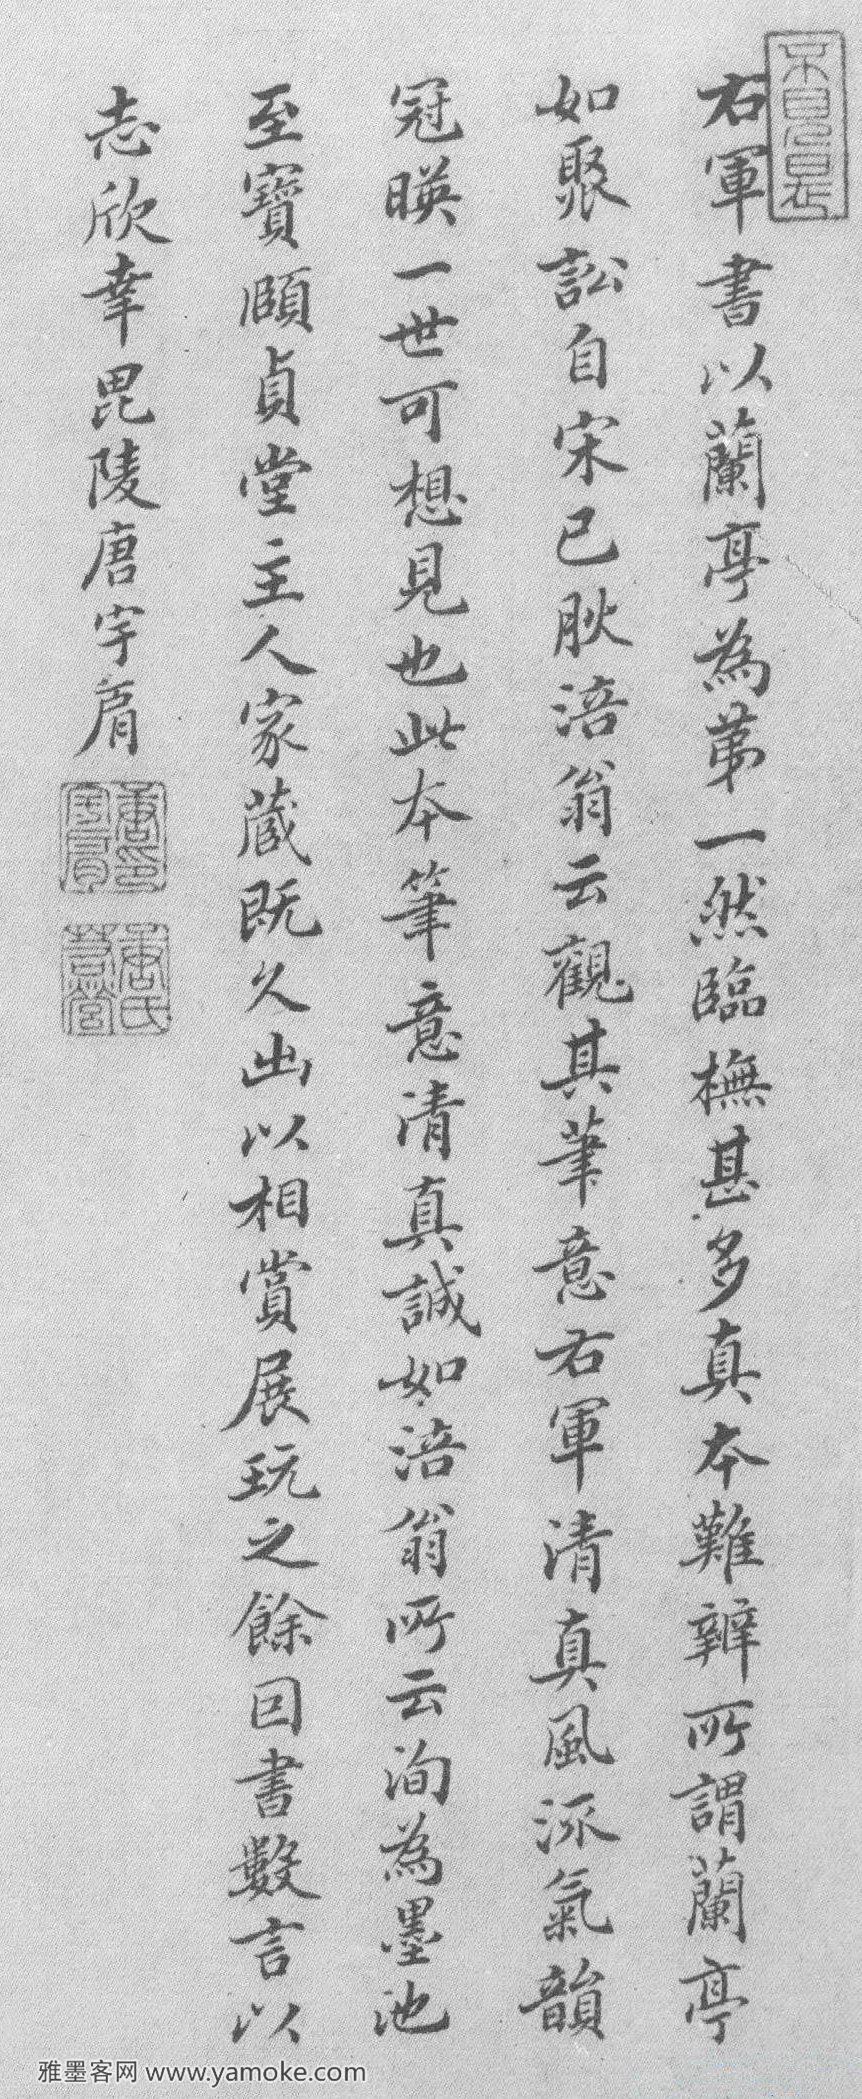 右軍書以蘭亭為第一然臨橅甚多真本難辨所謂蘭亭
如聚訟自宋已肰涪翁云觀其筆意右軍清真風流氣韻
冠暎一世可想見也此本筆意清真誠如涪翁所云洵為墨池
至寶頤貞堂主人家藏既久出以相賞展玩之餘因書數言以
志欣幸毘陵唐宇肩
唐印宇肩
雅墨客网 www.yamoke.com